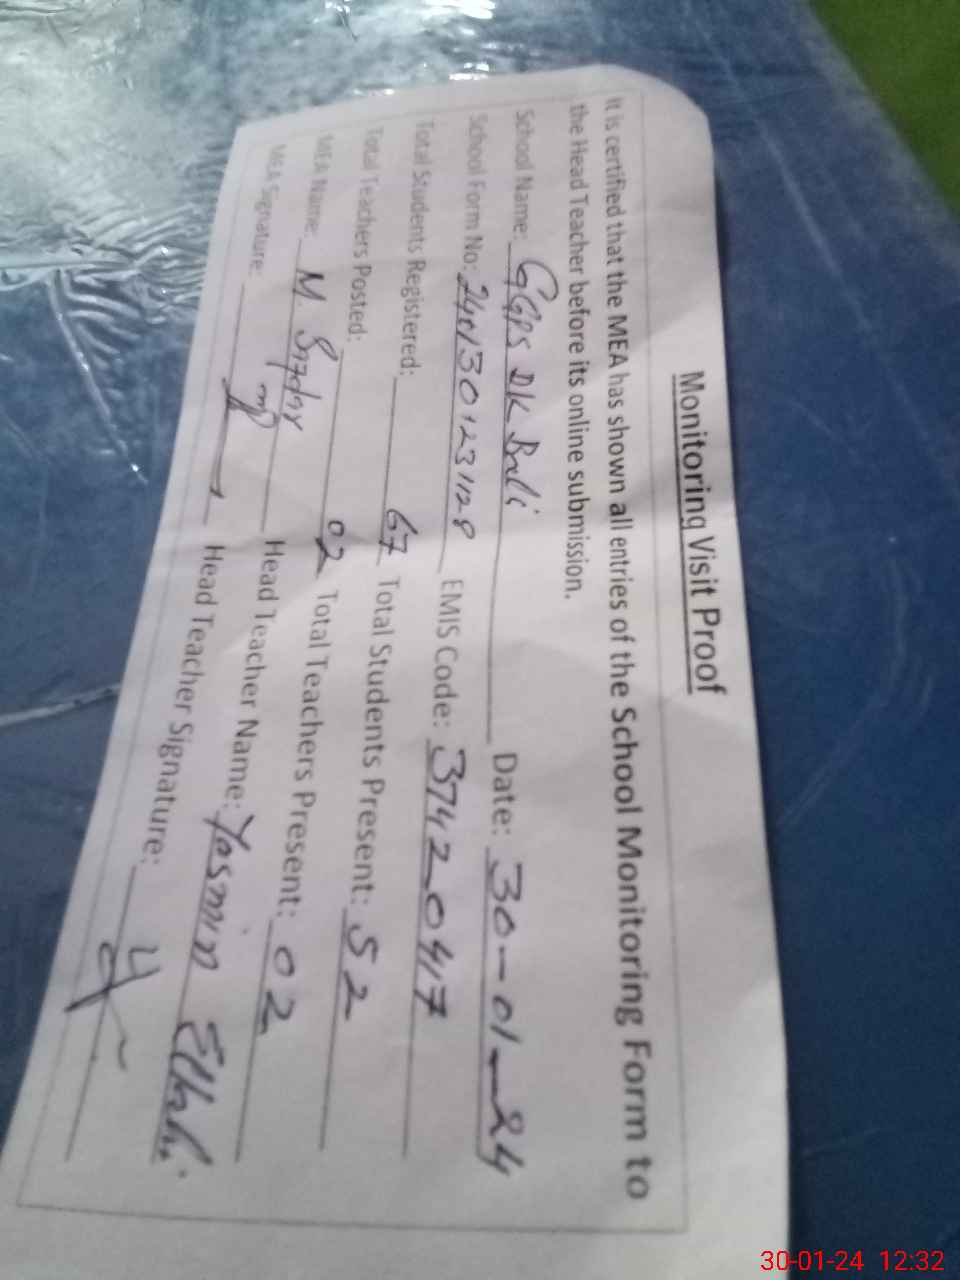 Monitoring Visit Proof
It is certified that the MEA has shown all entries of the School Monitoring Form to
the Head Teacher before its online submission.
School Name: GGPS DK Bali Date: 30-01-24
School Form No: EMIS Code: 37420417
Total Students Registered: 67 Total Students Present: 52
Total Teachers Posted: 02 Total Teachers Present: 02
MEA Name: M. Head Teacher Name: Yasmin Ellahi
MEA Signature: Head Teacher Signature:
30-01-24 12:32